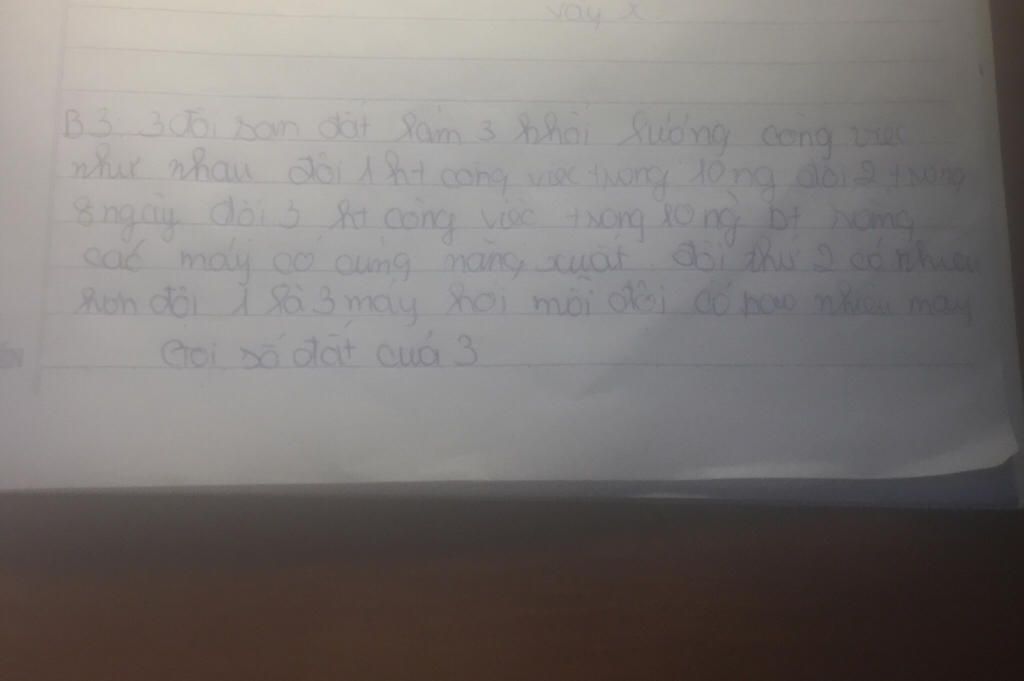 vay x
B3 3 đội san đất làm 3 khối lượng công việc
như nhau đội 1 ht công việc trong 10 ng đội 2 trong
8 ngày đội 3 ht công việc trong 10 ng bt rằng
các máy có cùng năng xuất đội thứ 2 có nhiều
hơn đội 1 là 3 máy hỏi mỗi đội có bao nhiêu máy
Gọi số đất của 3